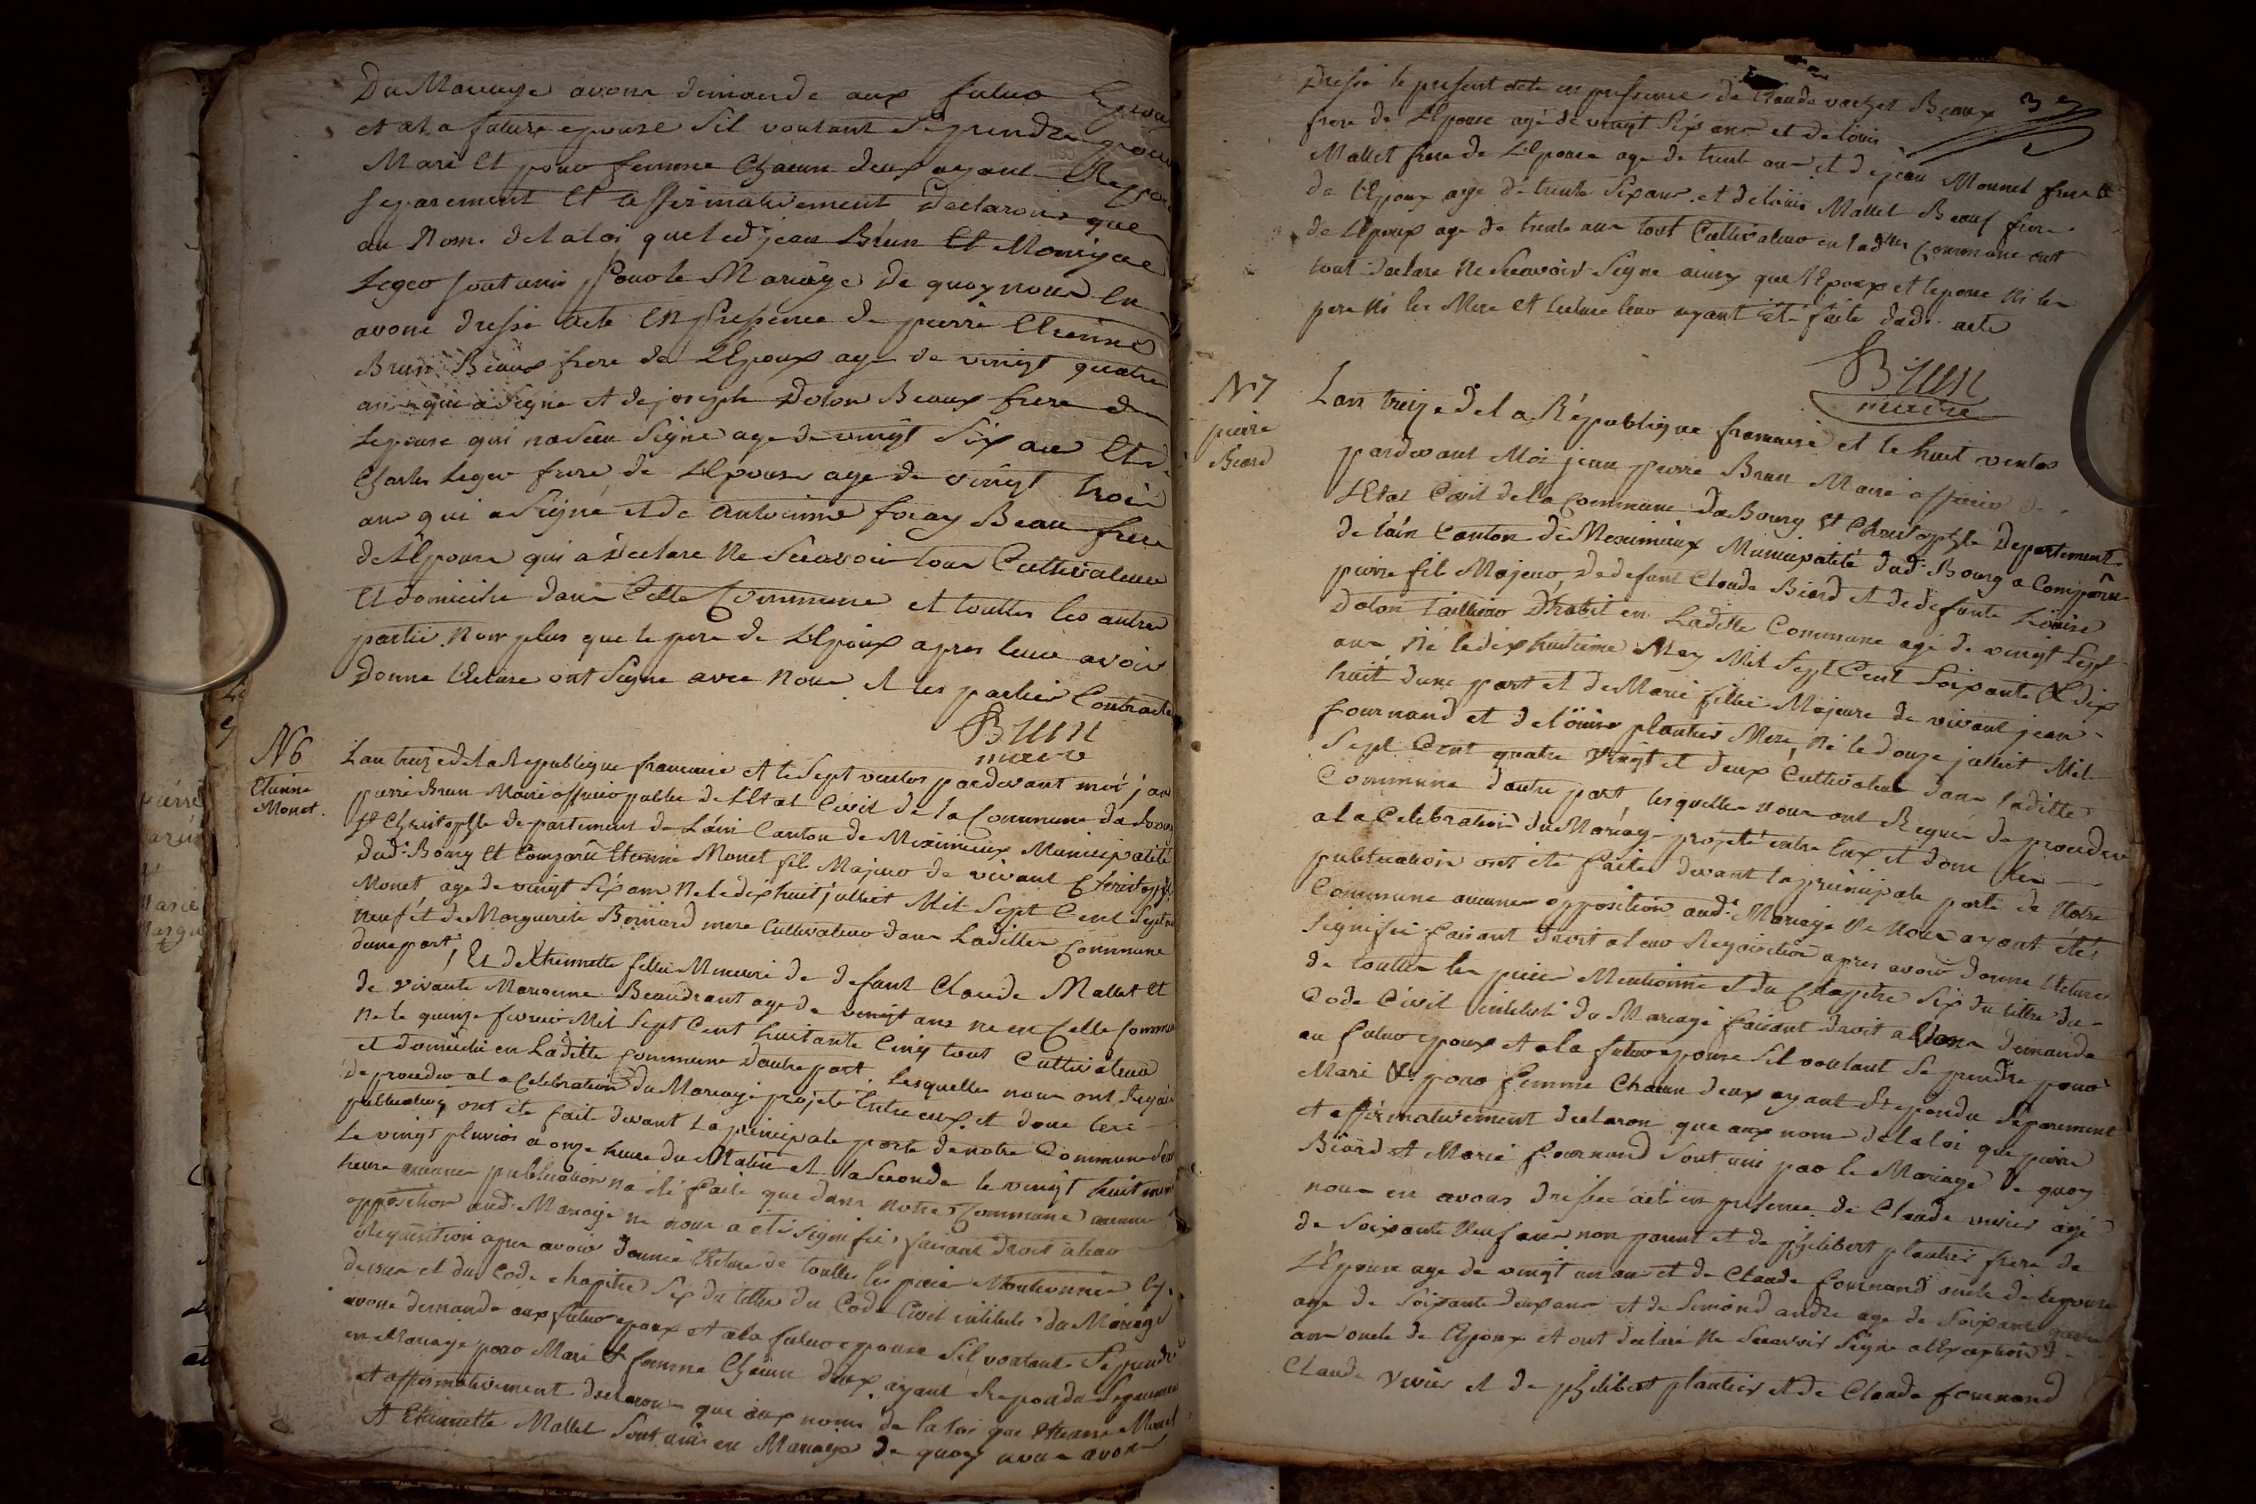 Du Mariage avons demande aux futuo Epoux
et a la future epouse Sil voulant Se prendre pour
Mari Et pour femme Chacun deux ayant Repondu
separement Et affirmativement Declarons que
au Nom de la loi que led jean Brun Et Monique
Leger sont unis pour le Mariage De quoy nous En
avons dressé acte En presence de pierre Etienne
Brun Beaux frere de L'Epoux age de vingt quatre
ans qui a signe et de joseph Dolon Beaux frere de
Lepouse qui na Sceu Signe age de vingt Six ans Et de
Charles Leger frere de L'Epouse age de vingt trois
ans qui a Signé et de Antoinne foray Beau frere
de L'Epouse qui a declare Ne Scavoir tous Cultivateur
Et domicilie dans Cette Commune et touttes les autres
partie non plus que le pere de L'Epoux apres leur avoir
Donne Lecture ont Signe avec Nous et les parties Contracte
Brun
maire
N 6
Etienne
Monet.
Lan treize de la Republique francaise et le Sept ventos pardevant moi jean
pierre Brun Maire officier public de L'Etat Civil de la Commune de Bourg
St Christophle departement de Lain Canton de Meximieux Municipalité
dud. Bourg Et Comparu Etienne Monet fils Majeur de vivant Christophle
Monet age de vingt Six ans Ne le dix huit julliet Mil Sept Cent Septante
neuf et de Marguerite Bernard mere Cultivateur dans Laditte Commune
dune part, Et de Ethiennette fille Mineure de defunt Claude Mallet Et
de vivante Marianne Beaudrant age de vingt ans ne en Cette Commune
Ne le quinze fevrier Mil Sept Cent huitante Cinq tout Cultivateur
et domicilie en Laditte Commune Dautre part. Lesquelles nous ont Requis
de proceder a la Celebration du Mariage projete Entre eux et donc les
publication ont ete fait devant La principale porte de notre Commune
Le vingt pluvios a onze heure du Matin et la Seconde le vingt huit meme
heure aucune publication na été faite que dans notre Commune aucune
opposition aud. Mariage ne nous a eté signifié, faisant Droit a leur
Requisition apres avoir donnee Lecture de touttes les piece Mentionnee Cy
dessus et du Code chapitre Six du titre du Code Civil intitule du Mariage
avons demande aux futur epoux et a la futur epouse Sil voulant Se prendre
en Mariage pour Mari Et femme Chacun deux ayant Repondu Separement
et affirmativement declarons que aux noms de la loi que Etienne Monet
Et Etiennette Mallet Sont unis en Mariage De quoy nous avons
37
Dressé le present acte en presence de Claude vachet Beaux
frere de L'Epouse agé de vingt Six ans et de louis
Mallet frere de L'Epouse age de trente ans et de jean Monnet frere
de L'Epoux age de trente Six ans et de louis Mallet Beauf frere
de L'Epoux age de trente ans tout Cultivateur en ladtte Commune ont
tout Declare Ne Scavoir Signe ainsy que l'Epoux et lepouse Ni les
pere Ni les Mere Et lecture leur ayant été faite dudi acte
Brun
maire
N 7
pierre
Biard
Lan treize de la République francaise et le huit ventos
pardevant Moi jean pierre Brun Maire officier de
L'Etat Civil de la Commune De Bourg St Christophle Departement
de lain Canton de Meximieux Municipalité dud. Bourg a Comparu
pierre fils Majeur De defunt Claude Biard et de defunte Louise
Dolon tailleur Dhabit en Laditte Commune agé de vingt Sept
ans Né le dix huitieme May Mil Sept Cent Soixante & dix
huit dune part et de Marie fille Majeure de vivant jean
fournand et de louise plantier Mere, Né le Douze julliet Mil
Sept Cent quatre vingt et deux Cultivateur dans laditte
Commune dautre part, lesquelles nous ont Requis de proceder
a la Celebration du Mariage projeté entre Eux et donc les
publication ont ete faites devant la principale porte de Notre
Commune aucune opposition aud. Mariage Ne Nous ayant été
Signifié faisant droit a leur Requisition apres avoir donne Lecture
de touttes les piece Mentionné et du Chapitre Six du tittre du
Code Civil intitulé du Mariage faisant droit a leur demande
au futur epoux et a la futur epouse Sil voulant Se prendre pour
Mari & pour femme Chacun deux ayant Repondu Separement
et affirmativement declaron que aux nom de la loi que pierre
Biard et Marie fournand Sont uni par le Mariage De quoy
nous en avons dressée acte en presence de Claude vivier agé
de Soixante Neuf ans non parent et de philibert plantier frere de
L'Epouse age de vingt un ans et de Claude fournand oncle de lepouse
age de Soixante deux ans et de Simond andre age de Soixante quatre
ans oncle de Lepoux et ont declaré Ne Scavoir Signe a l'Exception de
Claude Vivier et de philibert plantier et de Claude fournand